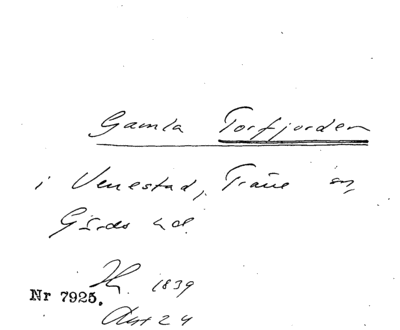 Gamla Torfjorden
i Venestad, Träne sn,
Gärds hd.
1839
Nr 7925.
Akt 24